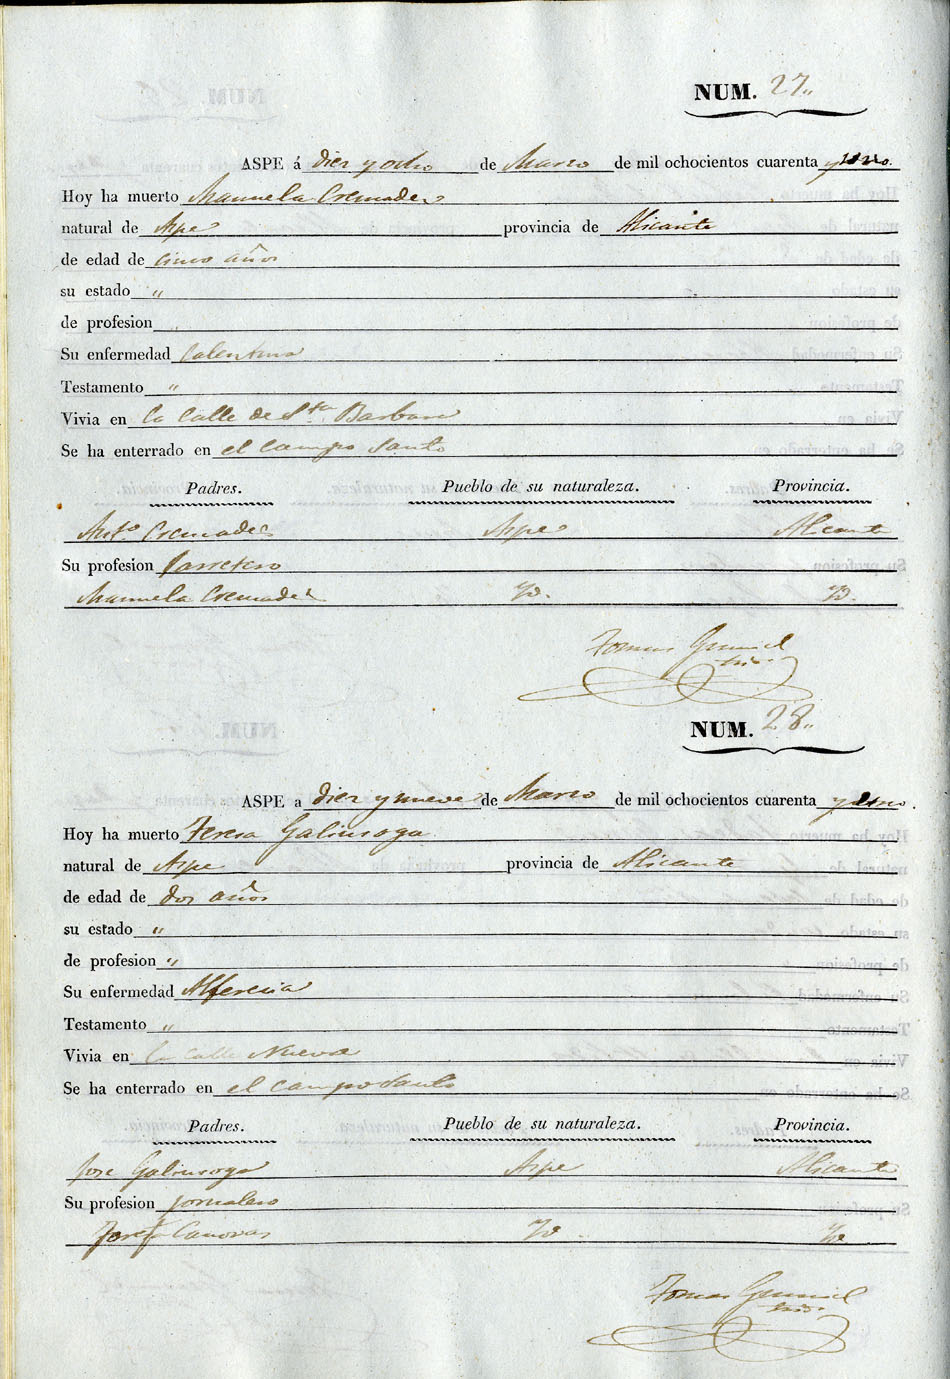 NUM. 27.,
ASPE á diez y ocho de Marzo de mil ochocientos cuarenta y uno.
Hoy ha muerto Manuela Cremades
natural de Aspe provincia de Alicante
de edad de cinco años
su estado "
de profesion "
Su enfermedad Calentura
Testamento "
Vivia en la Calle de Sta Barbara
Se ha enterrado en el Campo Santo
Padres. Pueblo de su naturaleza. Provincia.
Anto Cremades Aspe Alicante
Su profesion Carretero
Manuela Cremades Yd. Yd.
Tomas
NUM. 28.,
ASPE a diez y nueve de Marzo de mil ochocientos cuarenta y uno.
Hoy ha muerto Teresa Galinsoga
natural de Aspe provincia de Alicante
de edad de dos años
su estado "
de profesion "
Su enfermedad Alferecia
Testamento "
Vivia en la Calle Nueva
Se ha enterrado en el Campo Santo
Padres. Pueblo de su naturaleza. Provincia.
Jose Galinsoga Aspe Alicante
Su profesion jornalero
Josefa Canovas Yd. Yd.
Tomas